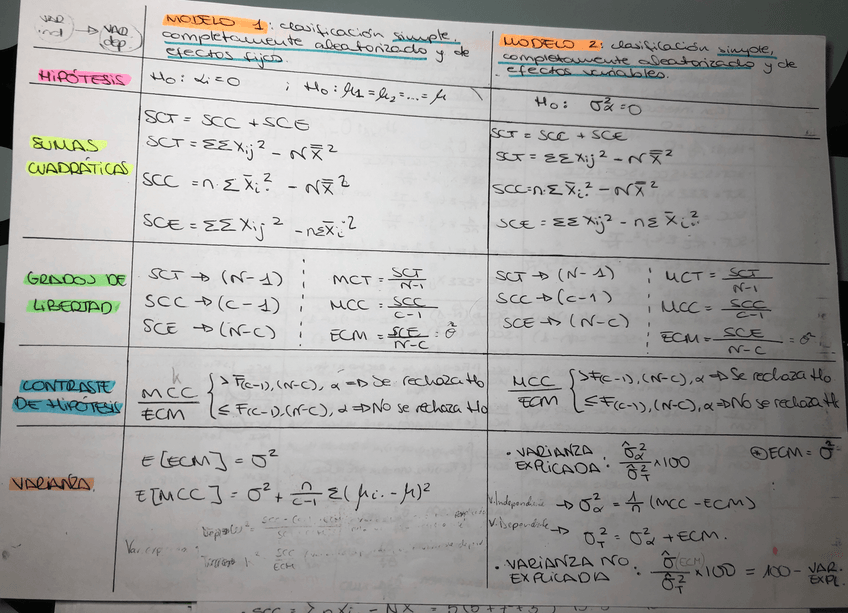 VAR ind → VAR dep.
MODELO 1: clasificación simple,
completamente aleatorizado y de
efectos fijos.
MODELO 2: clasificación simple,
completamente aleatorizado y de
efectos variables.
HIPÓTESIS
H₀: αi = 0 ; H₀: μ1 = μ2 = ... = μ
H₀: σ²α = 0
SUMAS
CUADRÁTICAS
SCT = SCC + SCE
SCT = ΣΣ Xij² - N X̿²
SCC = n·Σ X̄i.² - N X̿²
SCE = ΣΣ Xij² - nΣ X̄i.²
SCT = SCC + SCE
SCT = ΣΣ Xij² - N X̿²
SCC = n·Σ X̄i.² - N X̿²
SCE = ΣΣ Xij² - nΣ X̄i.²
GRADOS DE
LIBERTAD
SCT → (N-1)
SCC → (c-1)
SCE → (N-c)
MCT = SCT / N-1
MCC = SCC / c-1
ECM = SCE / N-c : σ̂²
SCT → (N-1)
SCC → (c-1)
SCE → (N-c)
MCT = SCT / N-1
MCC = SCC / c-1
ECM = SCE / N-c = σ²
CONTRASTE
DE HIPÓTESIS
k
MCC / ECM { > F(c-1),(N-c), α ⇒ Se rechaza H₀
≤ F(c-1),(N-c), α ⇒ No se rechaza H₀
MCC / ECM { > F(c-1),(N-c), α ⇒ Se rechaza H₀
≤ F(c-1),(N-c), α ⇒ No se rechaza H₀
VARIANZA
E[ECM] = σ²
E[MCC] = σ² + n / c-1 Σ(μi. - μ)²
· VARIANZA
EXPLICADA: σ̂²α / σ̂²T × 100
ECM = σ̂²
V. Independiente → σ²α = 1/n (MCC - ECM)
V. Dependiente → σ²T = σ²α + ECM.
· VARIANZA NO
EXPLICADA : σ̂ (ECM) / σ̂²T × 100 = 100 - VAR. EXPL.